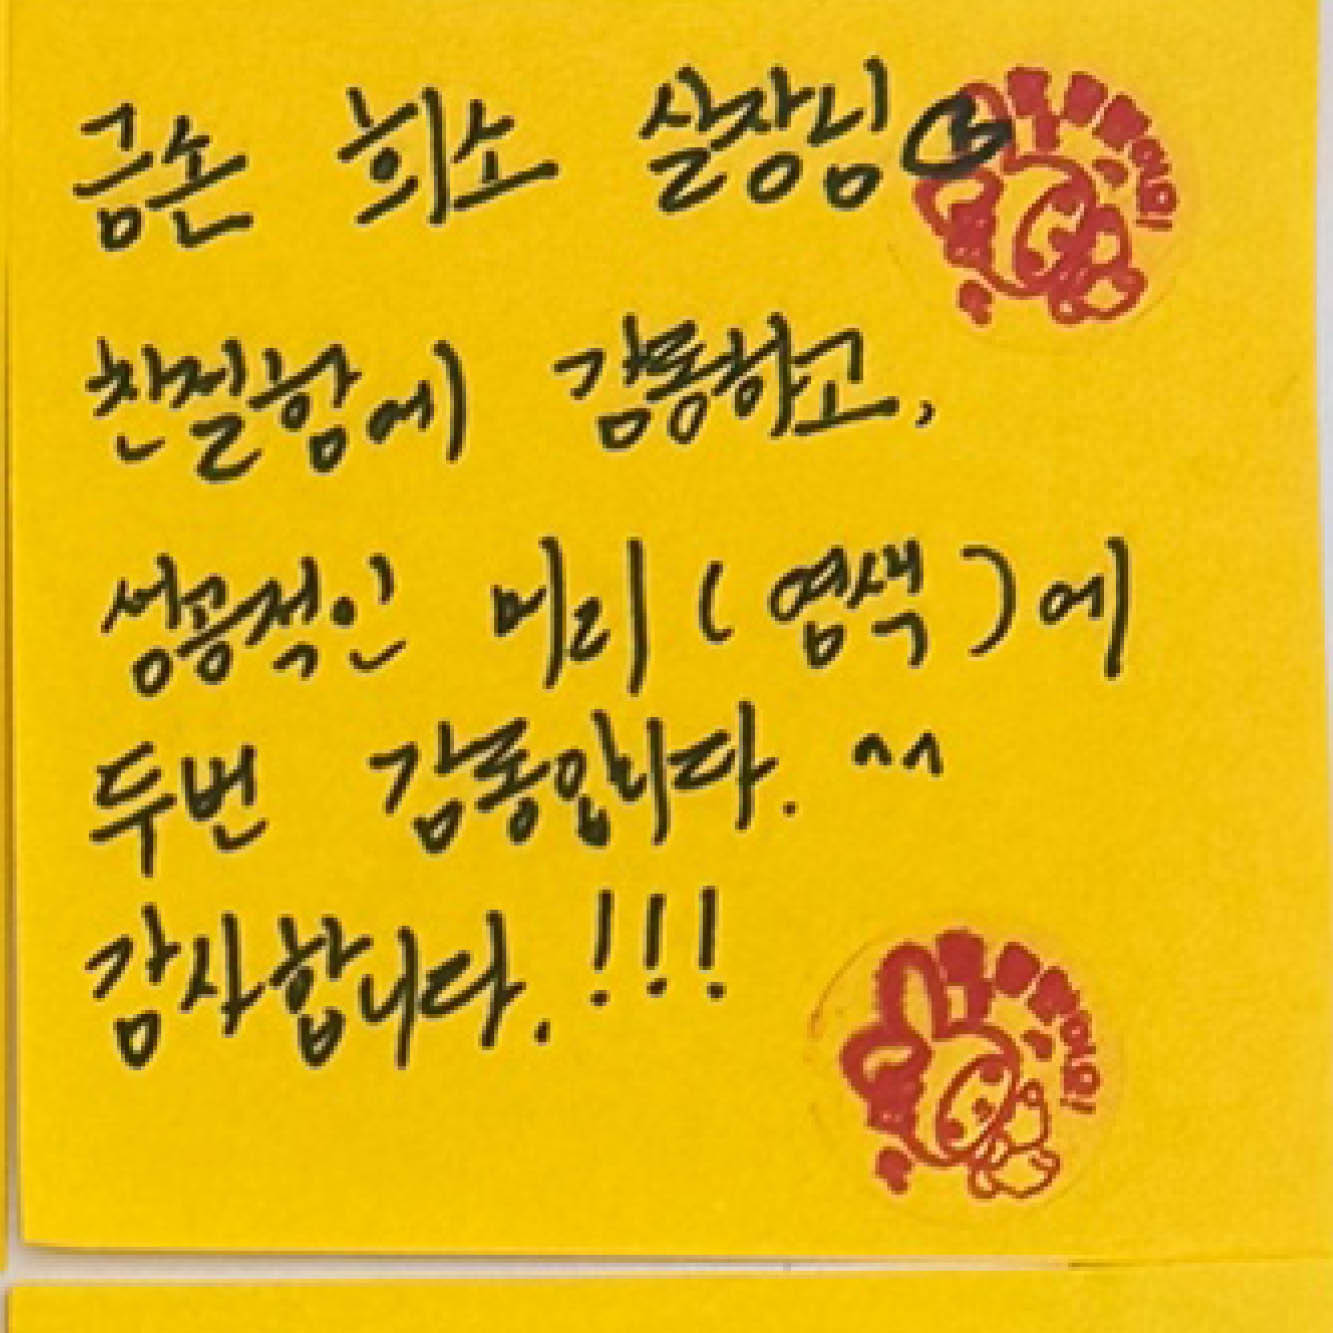 금손 희소 실장님
친절함에 감동하고,
성공적인 머리 (염색)에
두번 감동입니다. ^^
감사합니다. !!!